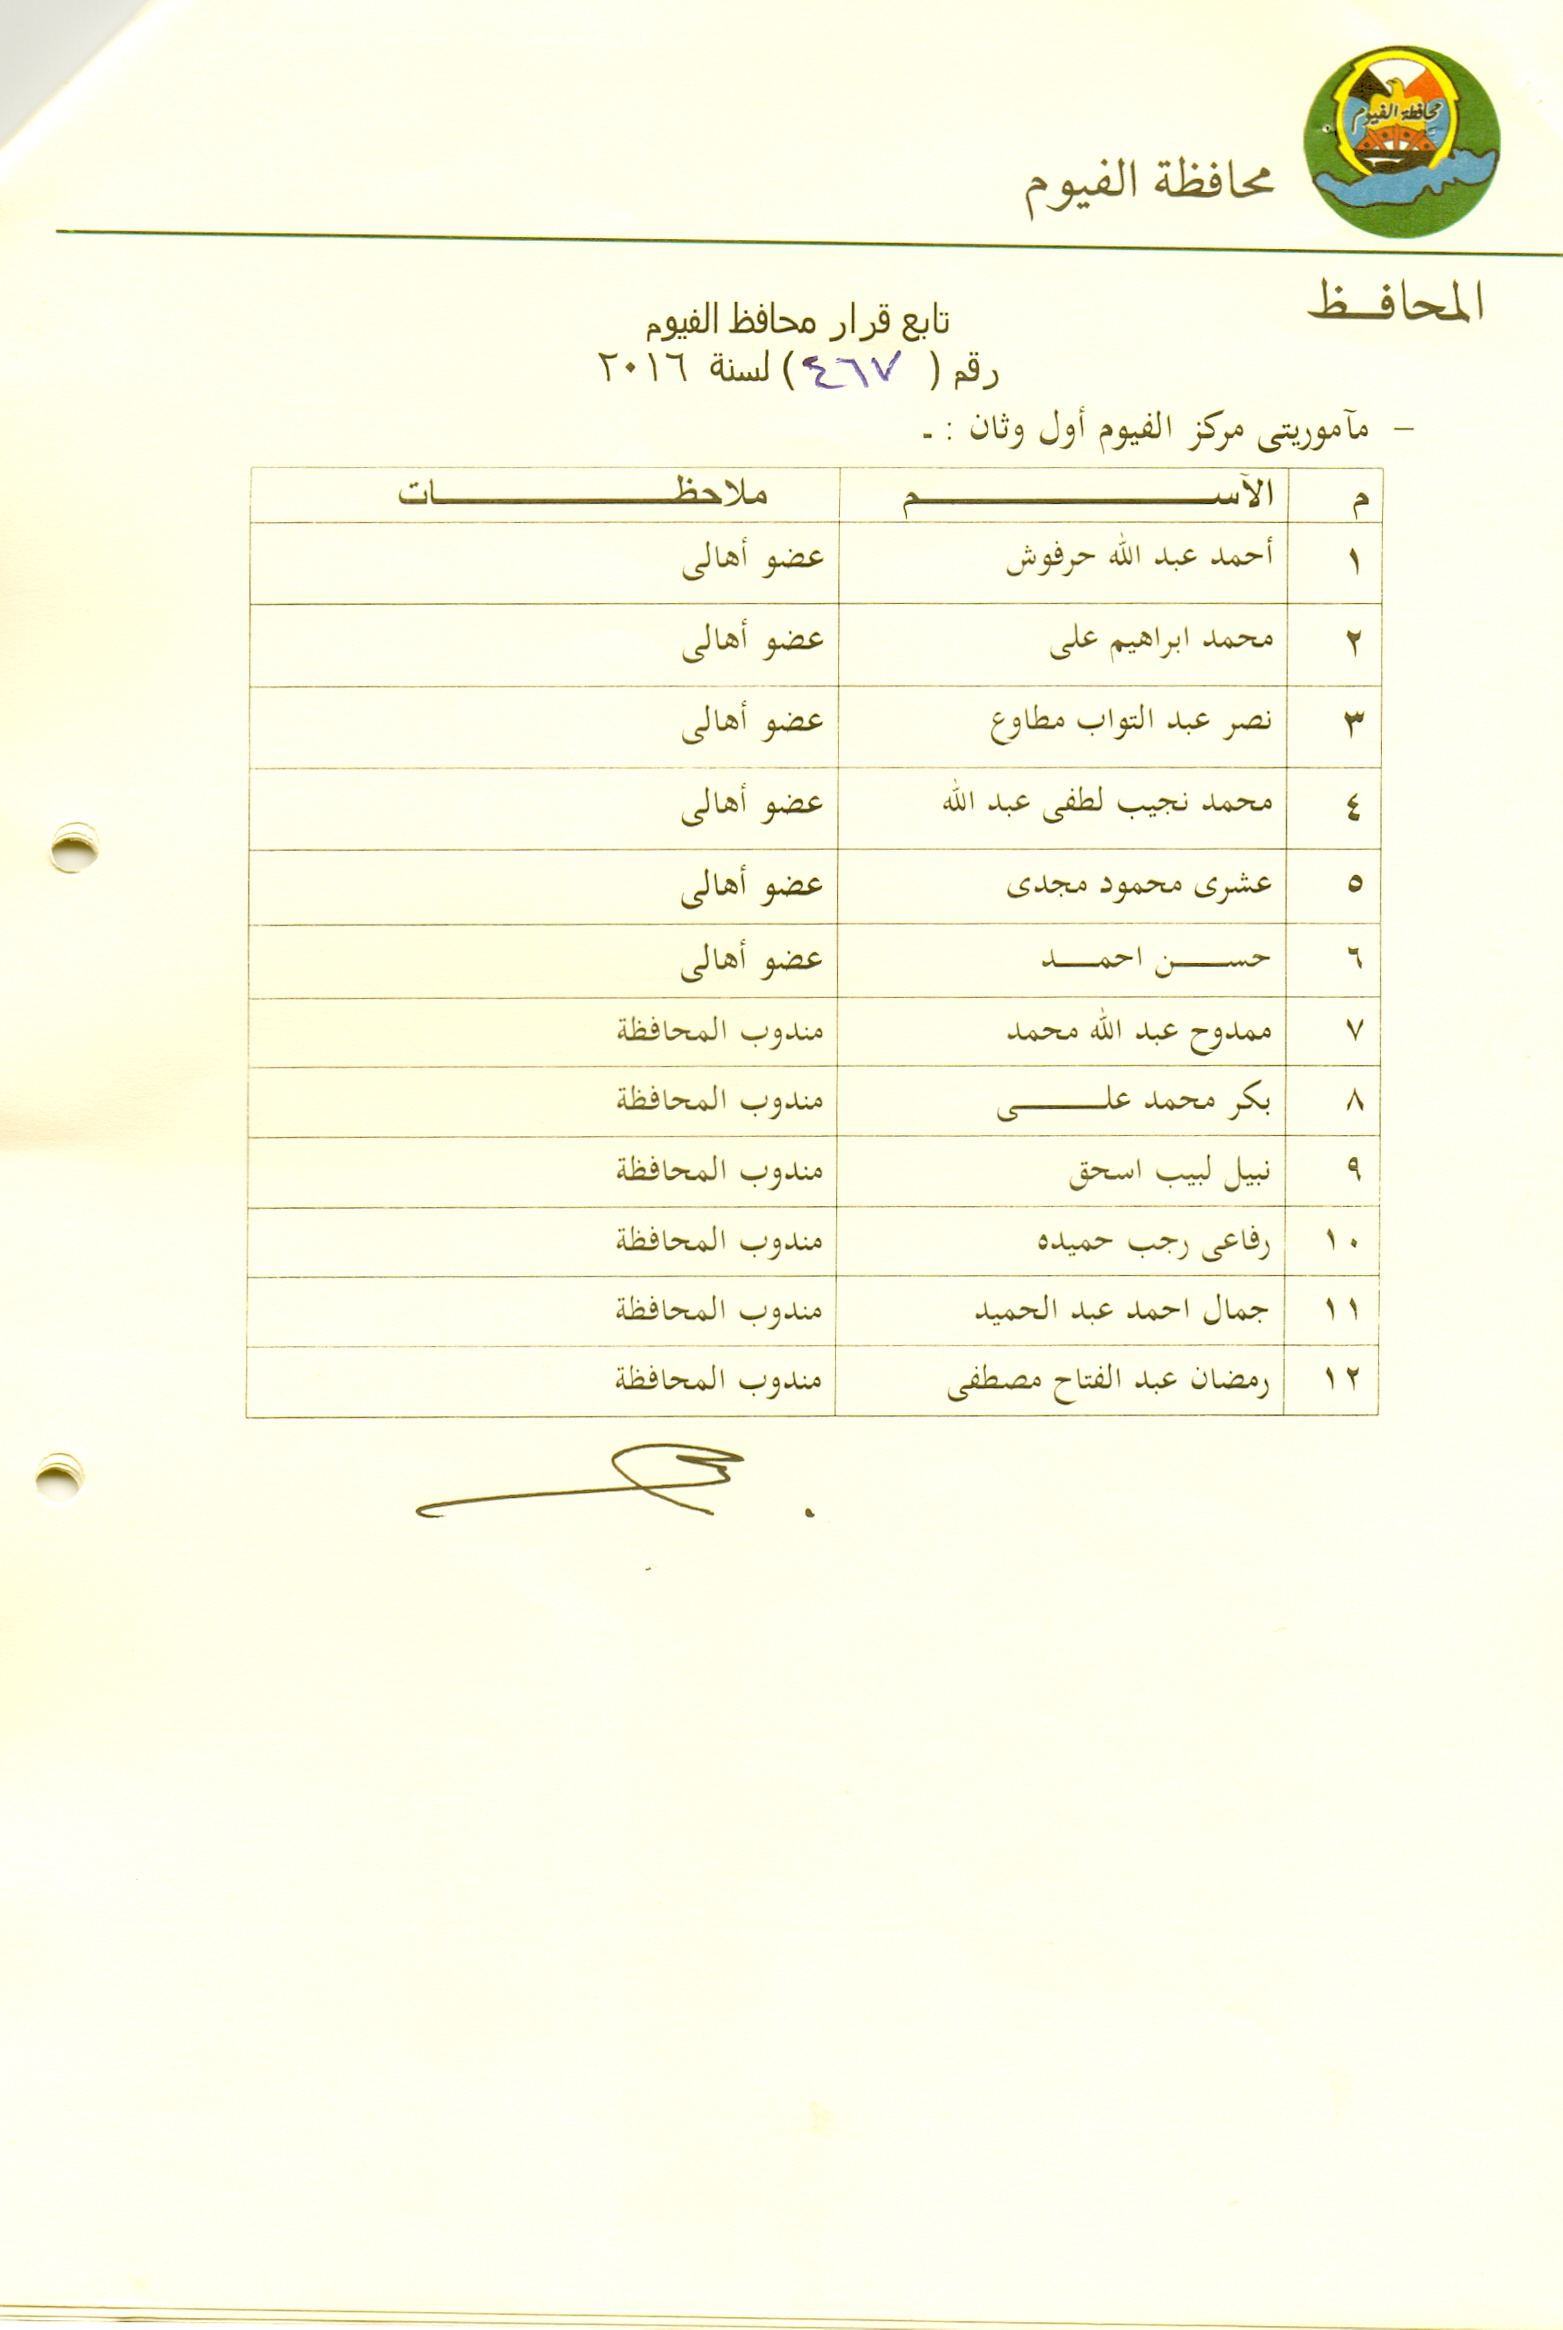 محافظة الفيوم
محافظة الفيوم
المحافـظ
تابع قرار محافظ الفيوم
رقم ( ٤٦٧ ) لسنة ٢٠١٦
– مآموريتى مركز الفيوم أول وثان : ـ
م الآســـــــــم ملاحظــــــــــــات
١ أحمد عبد الله حرفوش عضو أهالى
٢ محمد ابراهيم على عضو أهالى
٣ نصر عبد التواب مطاوع عضو أهالى
٤ محمد نجيب لطفى عبد الله عضو أهالى
٥ عشرى محمود مجدى عضو أهالى
٦ حســـن احمـــد عضو أهالى
٧ ممدوح عبد الله محمد مندوب المحافظة
٨ بكر محمد علـــــى مندوب المحافظة
٩ نبيل لبيب اسحق مندوب المحافظة
١٠ رفاعى رجب حميده مندوب المحافظة
١١ جمال احمد عبد الحميد مندوب المحافظة
١٢ رمضان عبد الفتاح مصطفى مندوب المحافظة